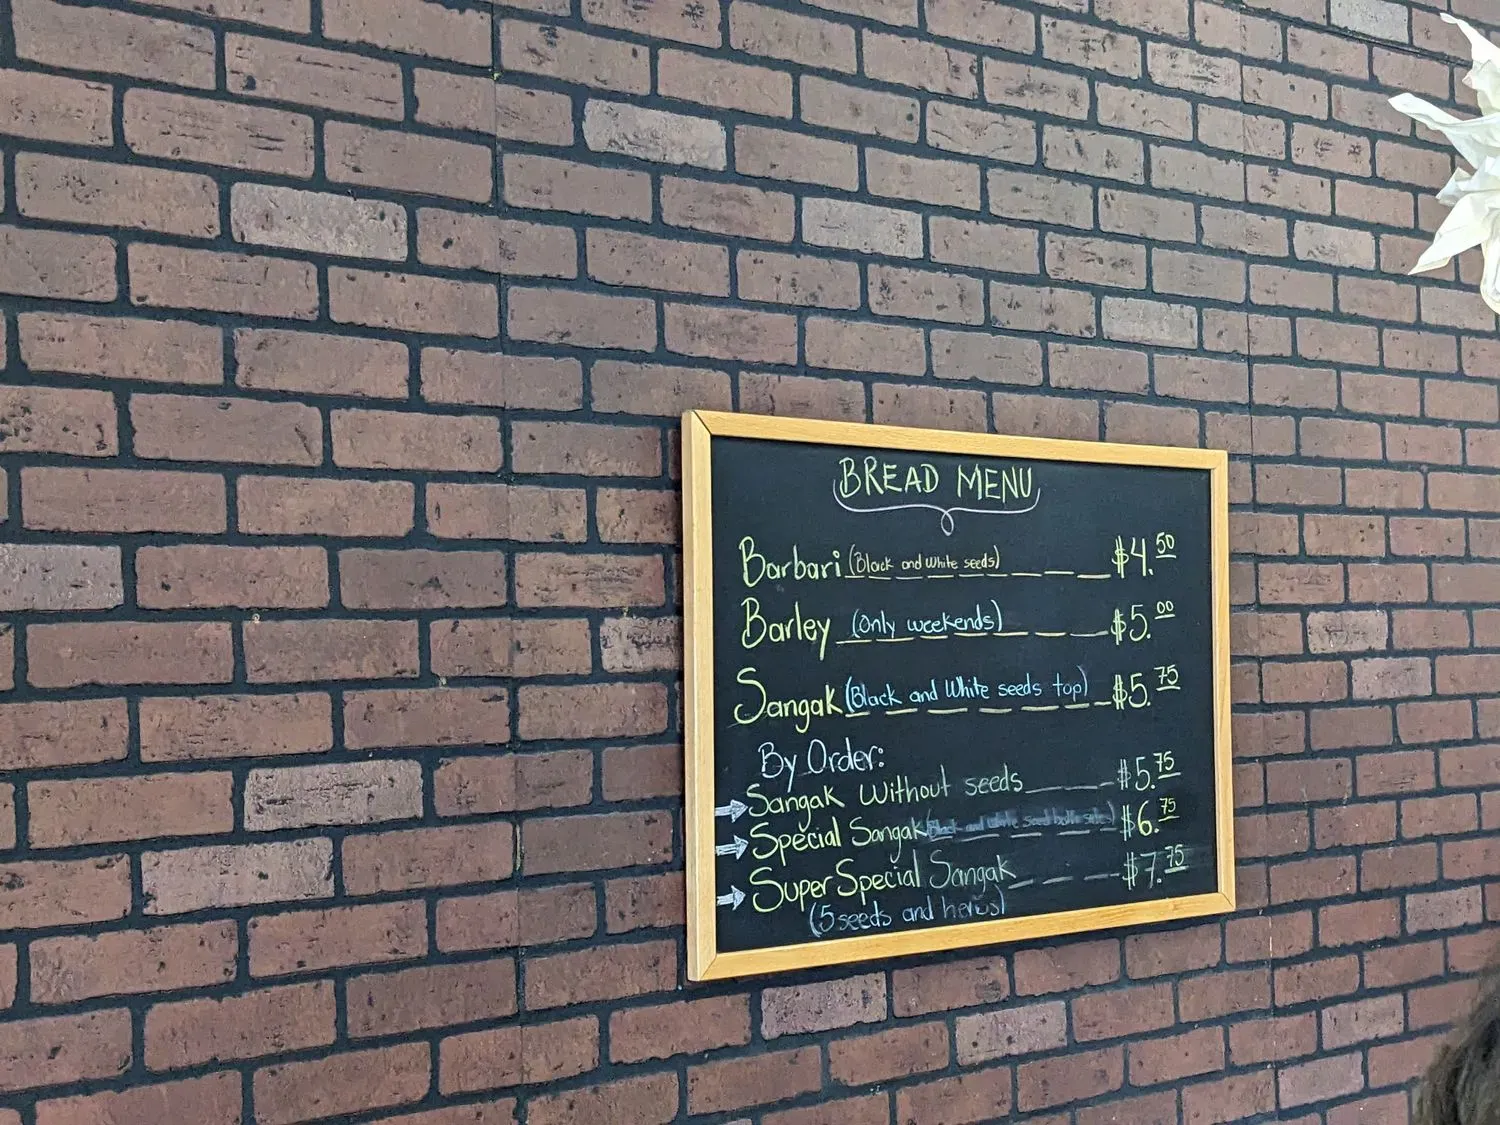 BREAD MENU
Barbari (Black and White seeds) $4.50
Barley (Only weekends) $5.00
Sangak (Black and White seeds top) $5.75
By Order:
Sangak Without seeds $5.75
Special Sangak (Black and White seed both sides) $6.75
Super Special Sangak $7.75
(5 seeds and herbs)